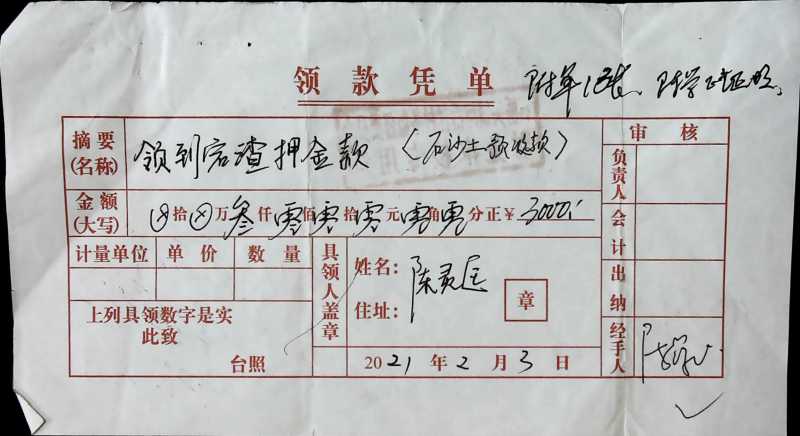 领款凭单
附单1张
摘要(名称) 领到宕渣押金款(石沙土款收款)
审核
负责人
金额(大写) ⊗拾⊗万叁仟零佰零拾零元零角零分正¥3000.
会计
计量单位 单价 数量
具领人盖章
姓名: 陈灵
住址:
章
出纳
上列具领数字是实
此致
台照
2021年2月3日
经手人